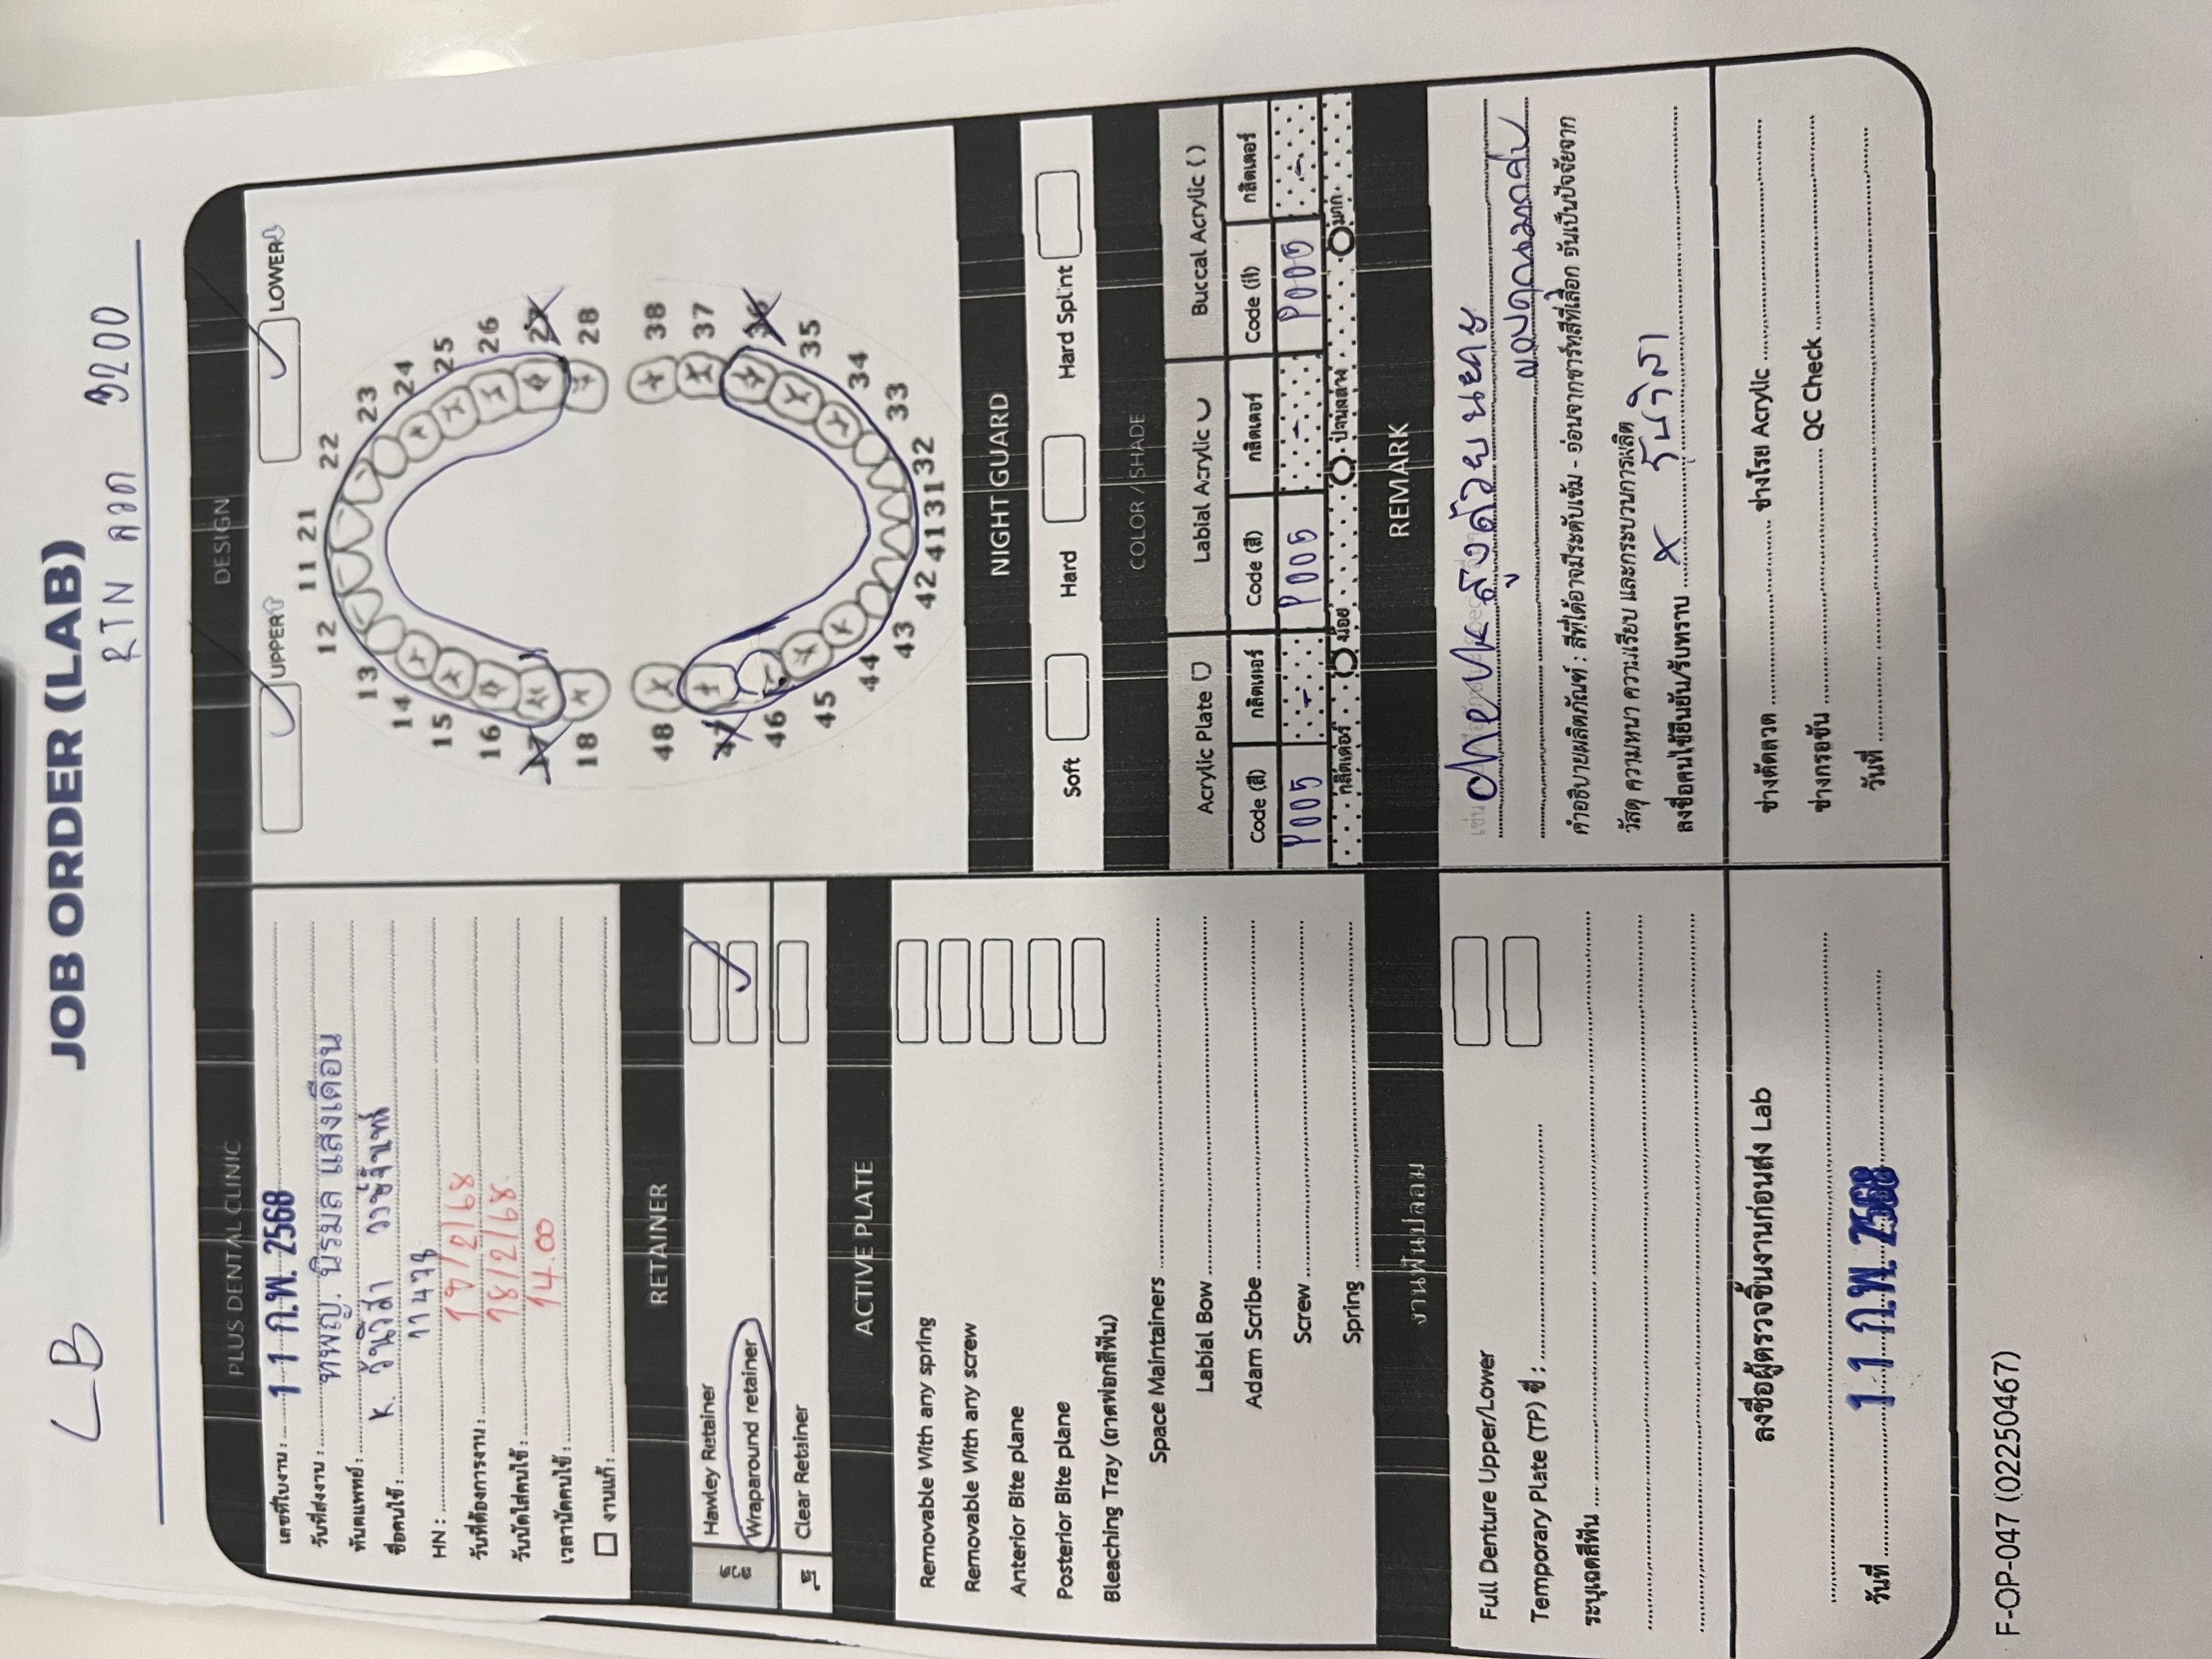 LB
JOB ORDER (LAB)
RTN ลวด 3200
PLUS DENTAL CLINIC
เลขที่ใบงาน :
11 ก.พ. 2568
วันที่ส่งงาน :
ทพญ. นิรมล แสงเดือน
ทันตแพทย์ :
ชื่อคนไข้ : K. วันวิสา วงษ์จันทร์
HN : 11478
วันที่ต้องการงาน : 17/2/68
วันนัดใส่คนไข้ : 18/2/68
เวลานัดคนไข้ : 14.00
งานแก้ :
RETAINER
ลวด
Hawley Retainer
Wraparound retainer
ใส
Clear Retainer
ACTIVE PLATE
Removable With any spring
Removable With any screw
Anterior Bite plane
Posterior Bite plane
Bleaching Tray (ถาดฟอกสีฟัน)
Space Maintainers
Labial Bow
Adam Scribe
Screw
Spring
งานฟันปลอม
Full Denture Upper/Lower
Temporary Plate (TP) ซี่ :
ระบุเฉดสีฟัน
ลงชื่อผู้ตรวจชิ้นงานก่อนส่ง Lab
วันที่ 11 ก.พ. 2568
DESIGN
UPPER LOWER
11 21
12 22
13 23
14 24
15 25
16 26
17 27
18 28
48 38
47 37
46 36
45 35
44 34
43 33
42 41 31 32
NIGHT GUARD
Soft Hard Hard Splint
COLOR / SHADE
Acrylic Plate Labial Acrylic Buccal Acrylic ( )
Code (สี) กลิตเตอร์ Code (สี) กลิตเตอร์ Code (สี) กลิตเตอร์
P005 - P005 - P005 -
กลิตเตอร์ น้อย ปานกลาง มาก
REMARK
check สูงด้วยนะคะ
ขอบคุณมากค่ะ
คำอธิบายผลิตภัณฑ์ : สีที่ได้อาจมีระดับเข้ม - อ่อนจากชาร์ทสีที่เลือก อันเป็นปัจจัยจาก
วัสดุ ความหนา ความเรียบ และกระบวนการผลิต
ลงชื่อคนไข้ยืนยัน/รับทราบ x วันวิสา
ช่างดัดลวด ช่างโรย Acrylic
ช่างกรอขัน QC Check
วันที่
F-OP-047 (02250467)